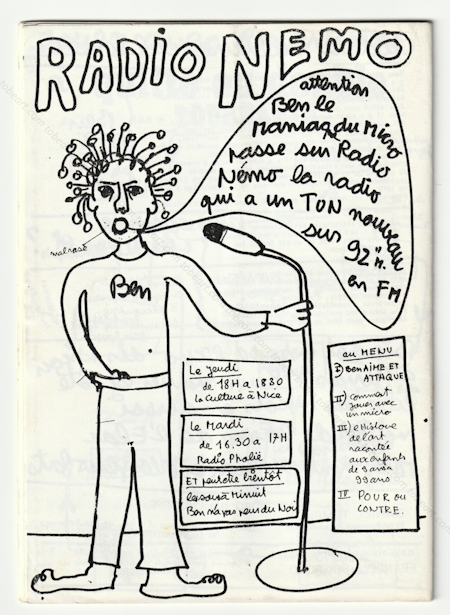 RADIO NEMO
attention
Ben le
Maniaq du Micro
passe sur Radio
Némo la radio
qui a un TON nouveau
sur 92 M.
en FM
mal rasé
Ben
Le jeudi
de 18H a 1830
la culture à Nice
Le Mardi
de 16.30 a 17H
Radio Phalie
ET peutetre bientôt
le soir à Minuit
Ben n'a pas peur du Noir
au MENU
I) Ben AIME ET
ATTAQUE
II) comment
jouer avec
un micro
III) le Histoire
de l'art
racontée
aux enfants
de 3 ans a
99 ans
IV POUR OU
CONTRE.